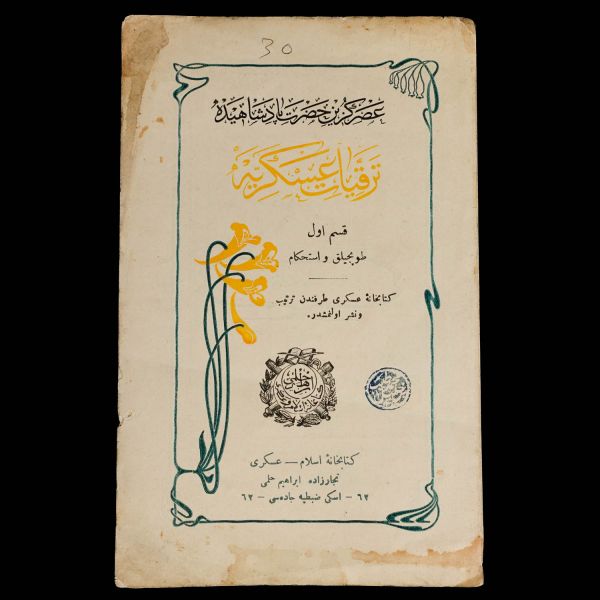 30
عصر كزين حضرت پادشاهيده
ترقيات عسكريه
قسم اول
طوپجيلق و استحكام
كتابخانهٔ عسكرى طرفندن ترتيب
و نشر اولنمشدر.
كتابخانهٔ اسلام — عسكرى
تجارزاده ابراهيم حلمى
٦٢ – اسكى ضبطيه جاده‌سى – ٦٢